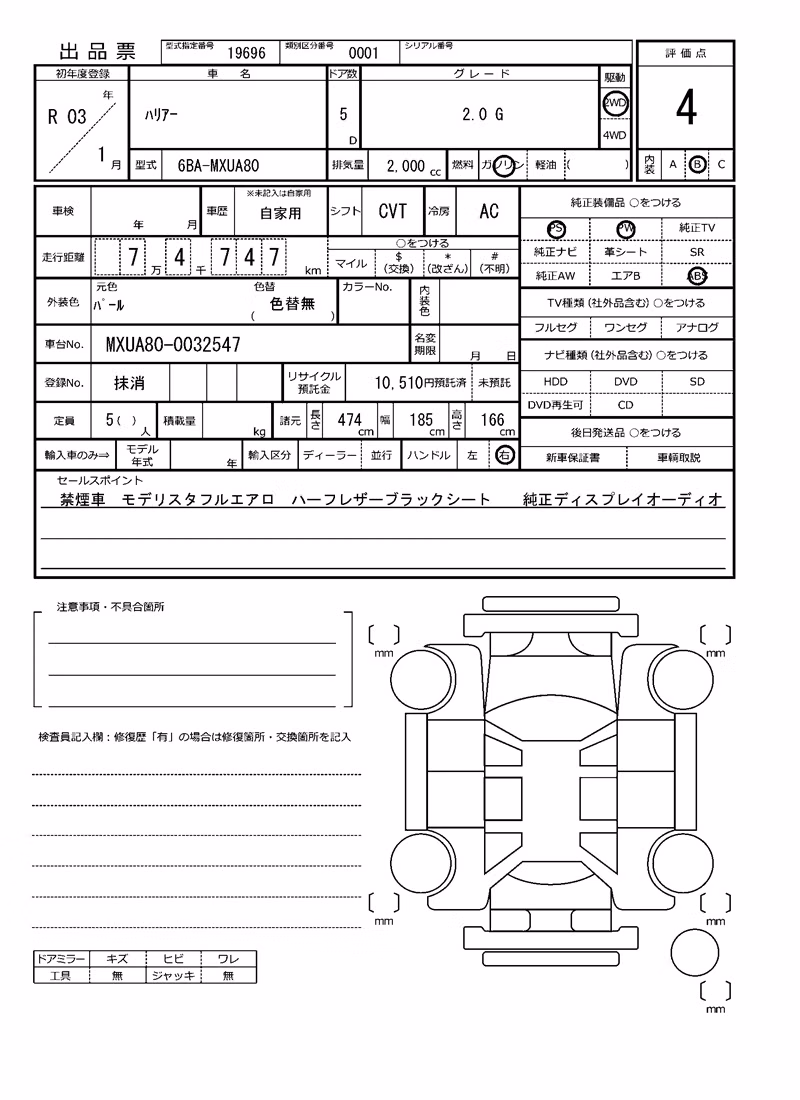 出品票 型式指定番号 19696 類別区分番号 0001 シリアル番号
評価点
4
内装 A B C
初年度登録 車名 ドア数 グレード 駆動
R 03 年 1 月 ﾊﾘｱｰ 5 D 2.0 G 2WD 4WD
型式 6BA-MXUA80 排気量 2,000 cc 燃料 ガソリン 軽油 ( )
車検 年 月 車歴 ※未記入は自家用 自家用 シフト CVT 冷房 AC
走行距離 7 万 4 千 7 4 7 km
○をつける
マイル $ (交換) * (改ざん) # (不明)
外装色 元色 ﾊﾟｰﾙ 色替 ( 色替無 ) カラーNo. 内装色
車台No. MXUA80-0032547 名変期限 月 日
登録No. 抹消 リサイクル預託金 10,510円預託済 未預託
定員 5 ( ) 人 積載量 kg 諸元 長さ 474 cm 幅 185 cm 高さ 166 cm
輸入車のみ⇒ モデル年式 年 輸入区分 ディーラー 並行 ハンドル 左 右
純正装備品 ○をつける
PS PW 純正TV
純正ナビ 革シート SR
純正AW エアB ABS
TV種類 (社外品含む) ○をつける
フルセグ ワンセグ アナログ
ナビ種類 (社外品含む) ○をつける
HDD DVD SD
DVD再生可 CD
後日発送品 ○をつける
新車保証書 車輌取説
セールスポイント
禁煙車 モデリスタフルエアロ ハーフレザーブラックシート 純正ディスプレイオーディオ
注意事項・不具合箇所
検査員記入欄：修復歴「有」の場合は修復箇所・交換箇所を記入
ドアミラー キズ ヒビ ワレ
工具 無 ジャッキ 無
mm mm
mm mm
mm